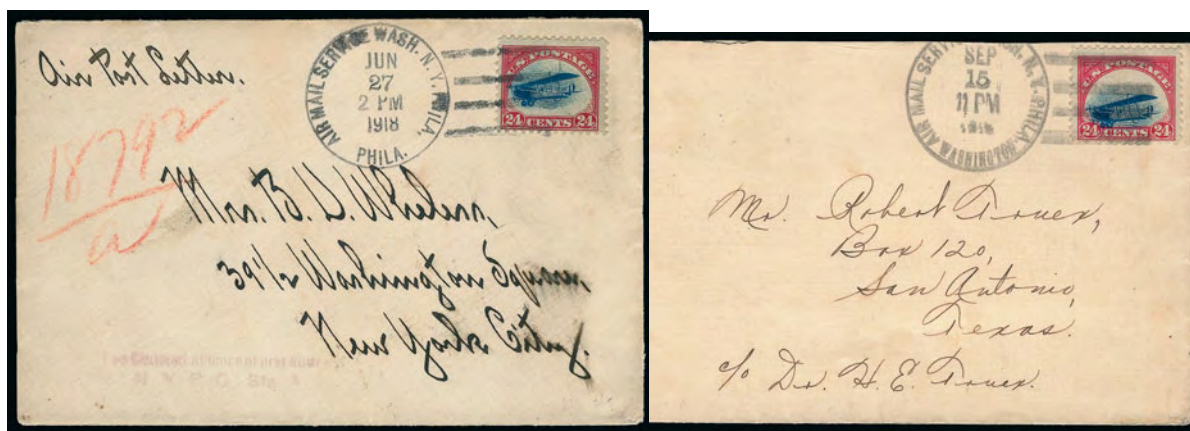 Air Post Letter.
AIR MAIL SERVICE WASH. N.Y. PHILA.
JUN
27
2 PM
1918
PHILA.
U.S. POSTAGE
24 CENTS 24
18792
a
Mrs. B. D. Whelern,
39 1/2 Washington Square,
New York City.
N Y P O Sta
AIR MAIL SERVICE WASH. N.Y. PHILA.
SEP
15
11 PM
WASHINGTON
U.S. POSTAGE
24 CENTS 24
Mr. Robert Truex,
Box 120,
San Antonio,
Texas.
c/o Dr. H. E. Truex.